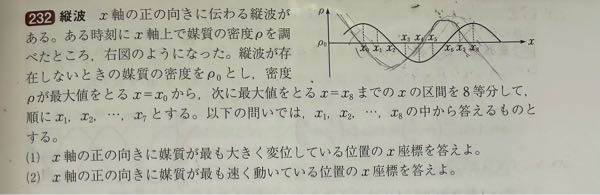 232 縦波 x軸の正の向きに伝わる縦波が
ある。ある時刻にx軸上で媒質の密度ρを調
べたところ，右図のようになった。縦波が存
在しないときの媒質の密度をρ₀とし，密度
ρ
ρ₀
x₀ x₁ x₂
x₃ x₄ x₅
x₆ x₇ x₈
x
ρが最大値をとるx=x₀から，次に最大値をとるx=x₈までのxの区間を8等分して，
順にx₁，x₂，…，x₇とする。以下の問いでは，x₁，x₂，…，x₈の中から答えるものと
する。
(1) x軸の正の向きに媒質が最も大きく変位している位置のx座標を答えよ。
(2) x軸の正の向きに媒質が最も速く動いている位置のx座標を答えよ。